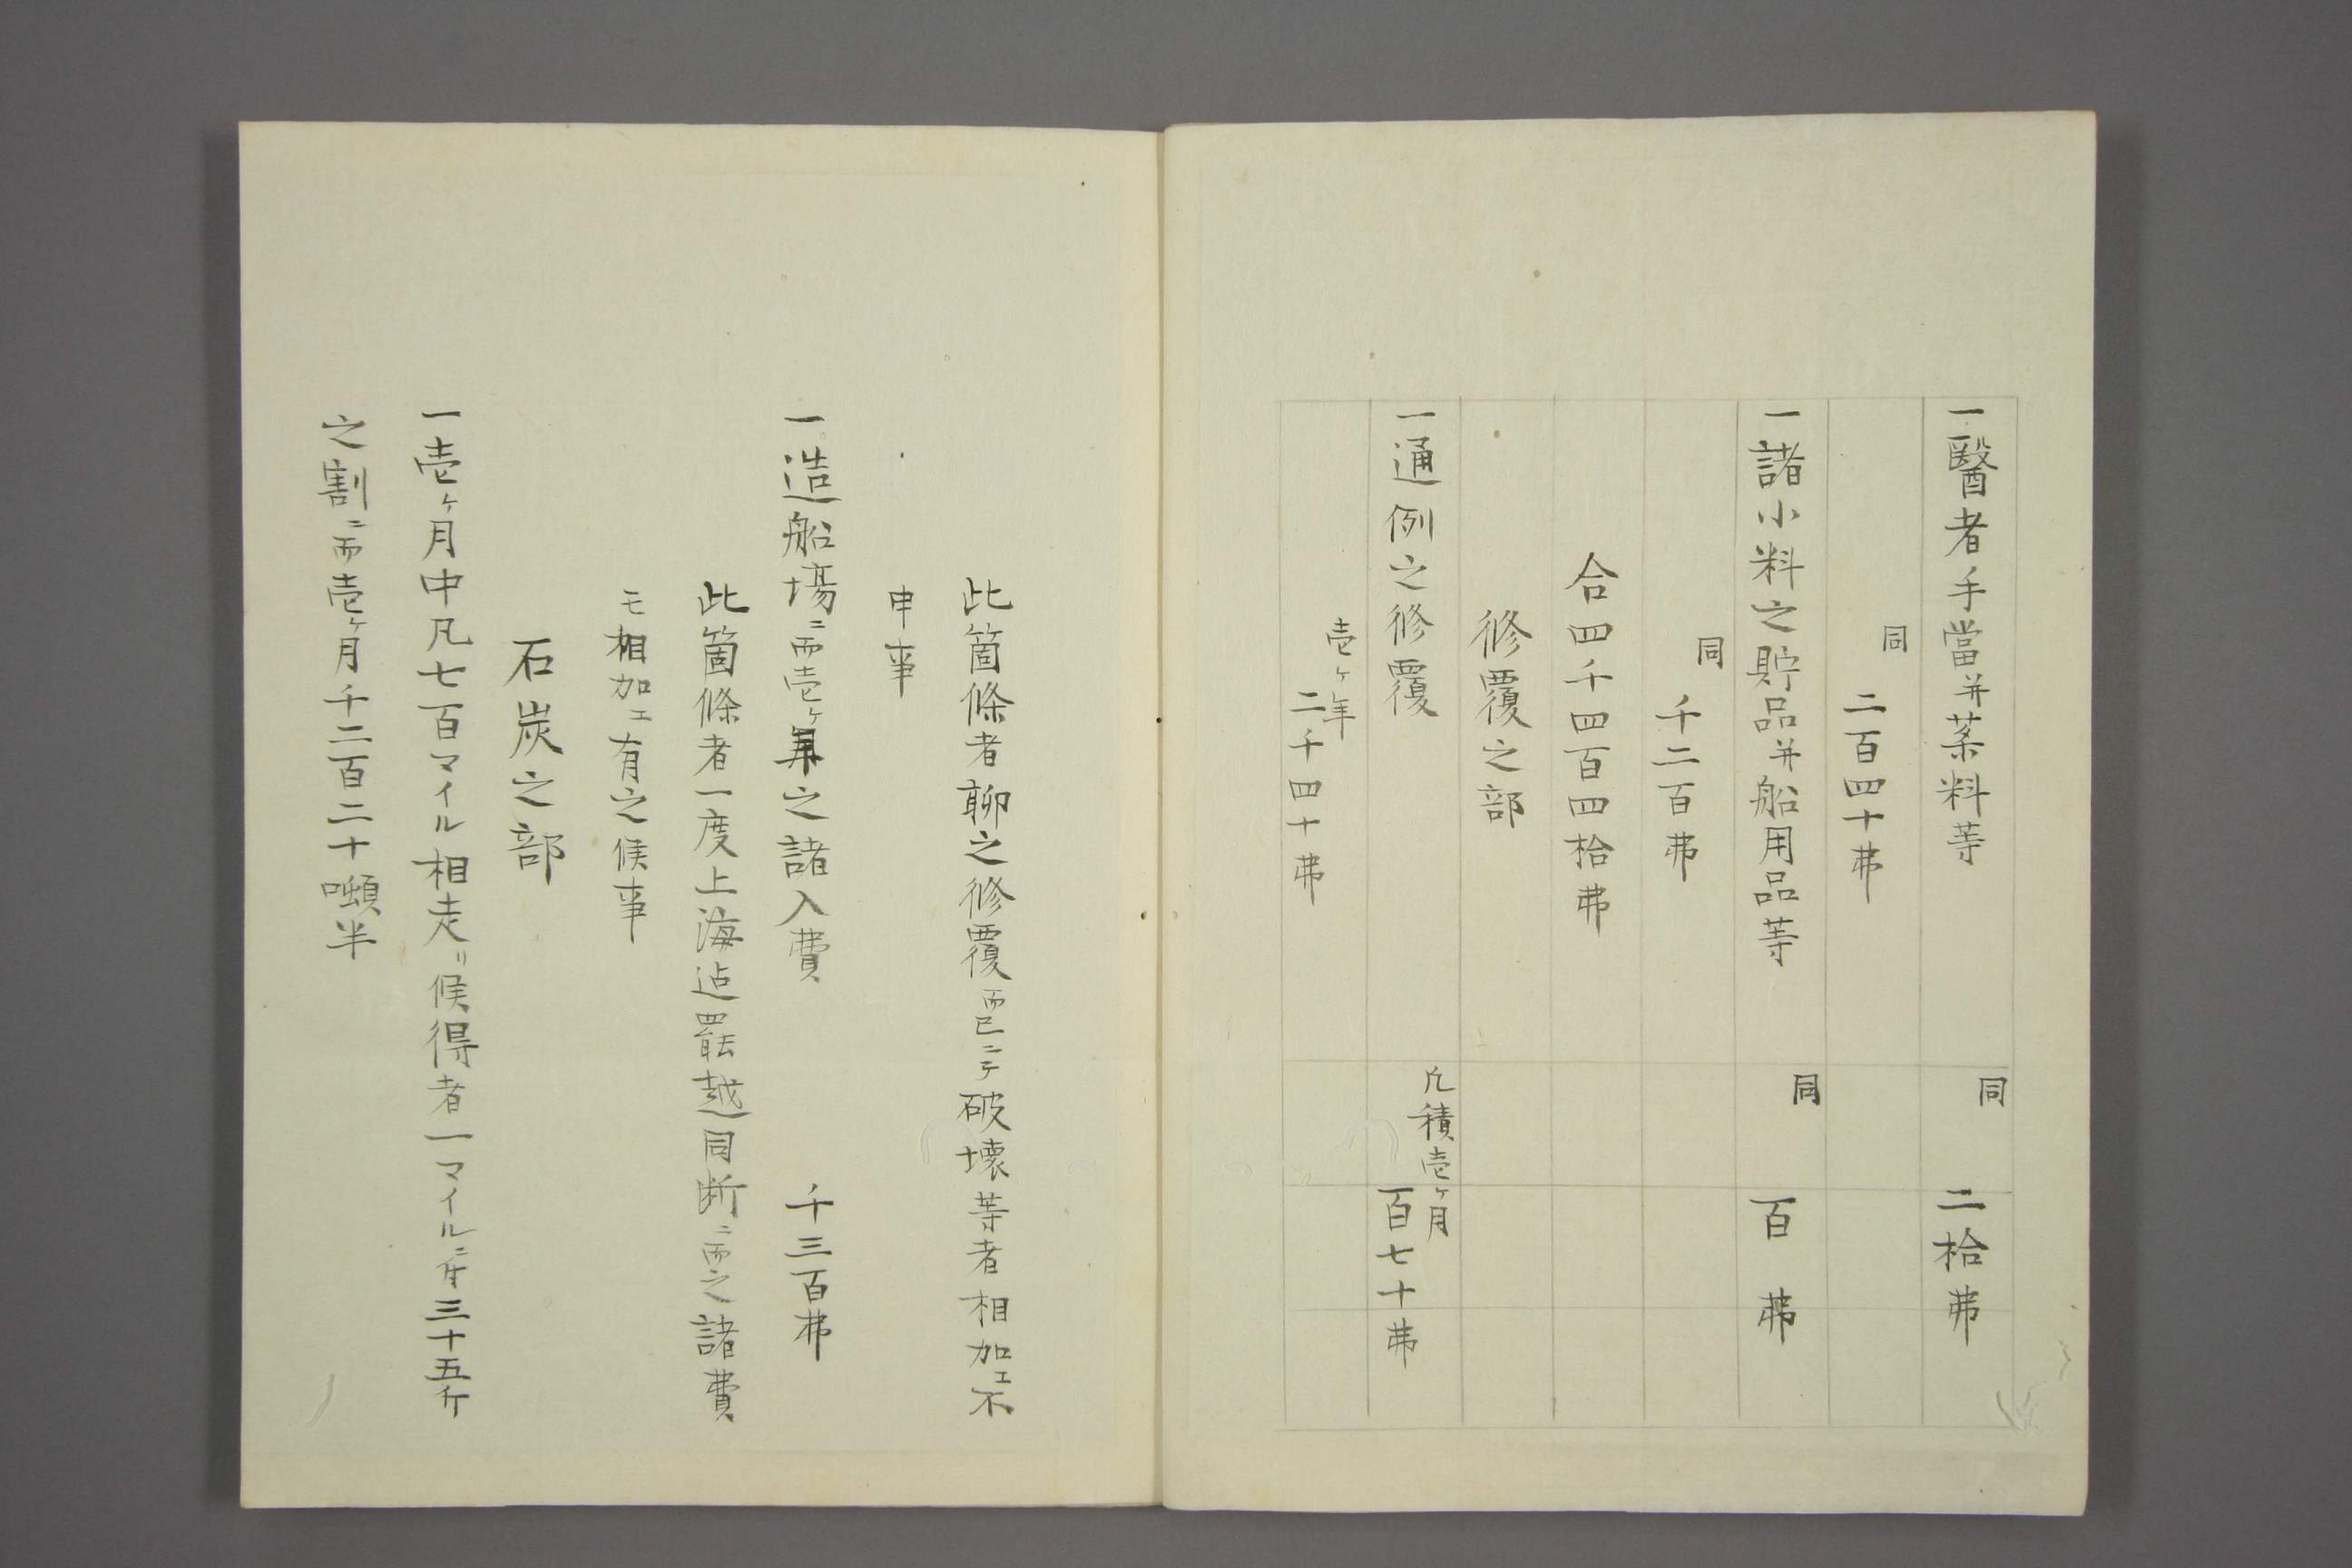 一醫者手當并薬料等 同 二拾弗
同 二百四十弗
一諸小料之貯品并船用品等 同 百弗
同 千二百弗
合四千四百四拾弗
修覆之部
一通例之修覆 凡積壱ヶ月 百七十弗
壱ヶ年 二千四十弗
此箇條者聊之修覆而已ニテ破壊等者相加エ不
申事
一造船場ニ而壱ヶ年之諸入費 千三百弗
此箇條者一度上海迠罷越同断ニ而之諸費
モ相加エ有之候事
石炭之部
一壱ヶ月中凡七百マイル相走リ候得者一マイルニ付三十五斤
之割ニ而壱ヶ月千二百二十噸半